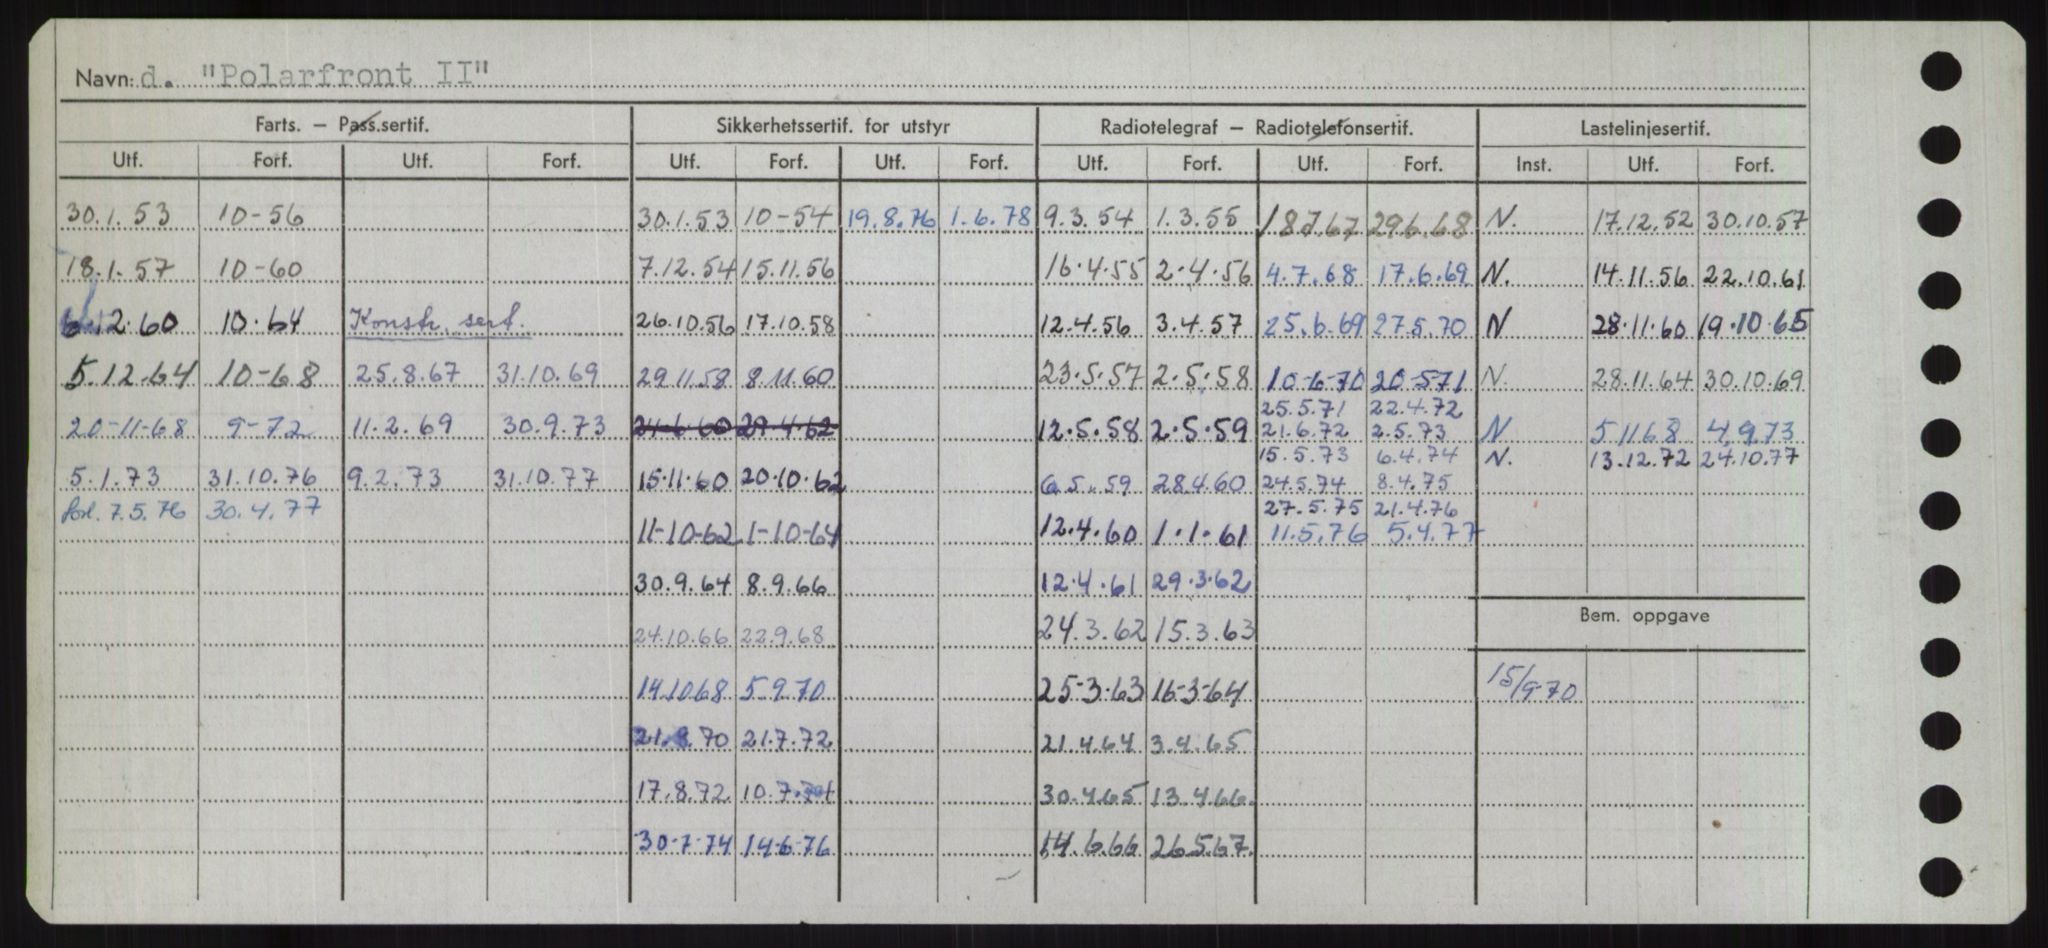 Navn: d. "Polarfront II"
Farts. – Pass.sertif. Sikkerhetssertif. for utstyr Radiotelegraf – Radiotelefonsertif. Lastelinjesertif.
Utf. Forf. Utf. Forf. Utf. Forf. Utf. Forf. Utf. Forf. Utf. Forf. Inst. Utf. Forf.
30.1.53 10-56 30.1.53 10-54 19.8.76 1.6.78 9.3.54 1.3.55 18.7.67 29.6.68 N. 17.12.52 30.10.57
18.1.57 10-60 7.12.54 15.11.56 16.4.55 2.4.56 4.7.68 17.6.69 N. 14.11.56 22.10.61
12.60 10.64 Konstr. sert. 26.10.56 17.10.58 12.4.56 3.4.57 25.6.69 27.5.70 N 28.11.60 19.10.65
5.12.64 10-68 25.8.67 31.10.69 29.11.58 8.11.60 23.5.57 2.5.58 10-6-70 20-5-71 N. 28.11.64 30.10.69
25.5.71 22.4.72
20-11-68 9-72 11.2.69 30.9.73 21.6.60 29.4.62 12.5.58 2.5.59 21.6.72 2.5.73 N 5 11 68 4.9.73
15.5.73 6.4.74 N. 13.12.72 24.10.77
5.1.73 31.10.76 9.2.73 31.10.77 15.11.60 20.10.62 6.5.59 28.4.60 24.5.74 8.4.75
Forl. 7.5.76 30.4.77 27.5.75 21.4.76
11-10-62 1-10-64 12.4.60 1.1.61 11.5.76 5.4.77
30.9.64 8.9.66 12.4.61 29.3.62
Bem. oppgave
24.10.66 22.9.68 24.3.62 15.3.63
14.10.68 5.9.70 25-3-63 16-3-64 15/9-70
21.8.70 21.7.72 21.4.64 3.4.65
17.8.72 10.7.74 30.4.65 13.4.66.
30-7-74 14-6-76 14.6.66 26.5.67.